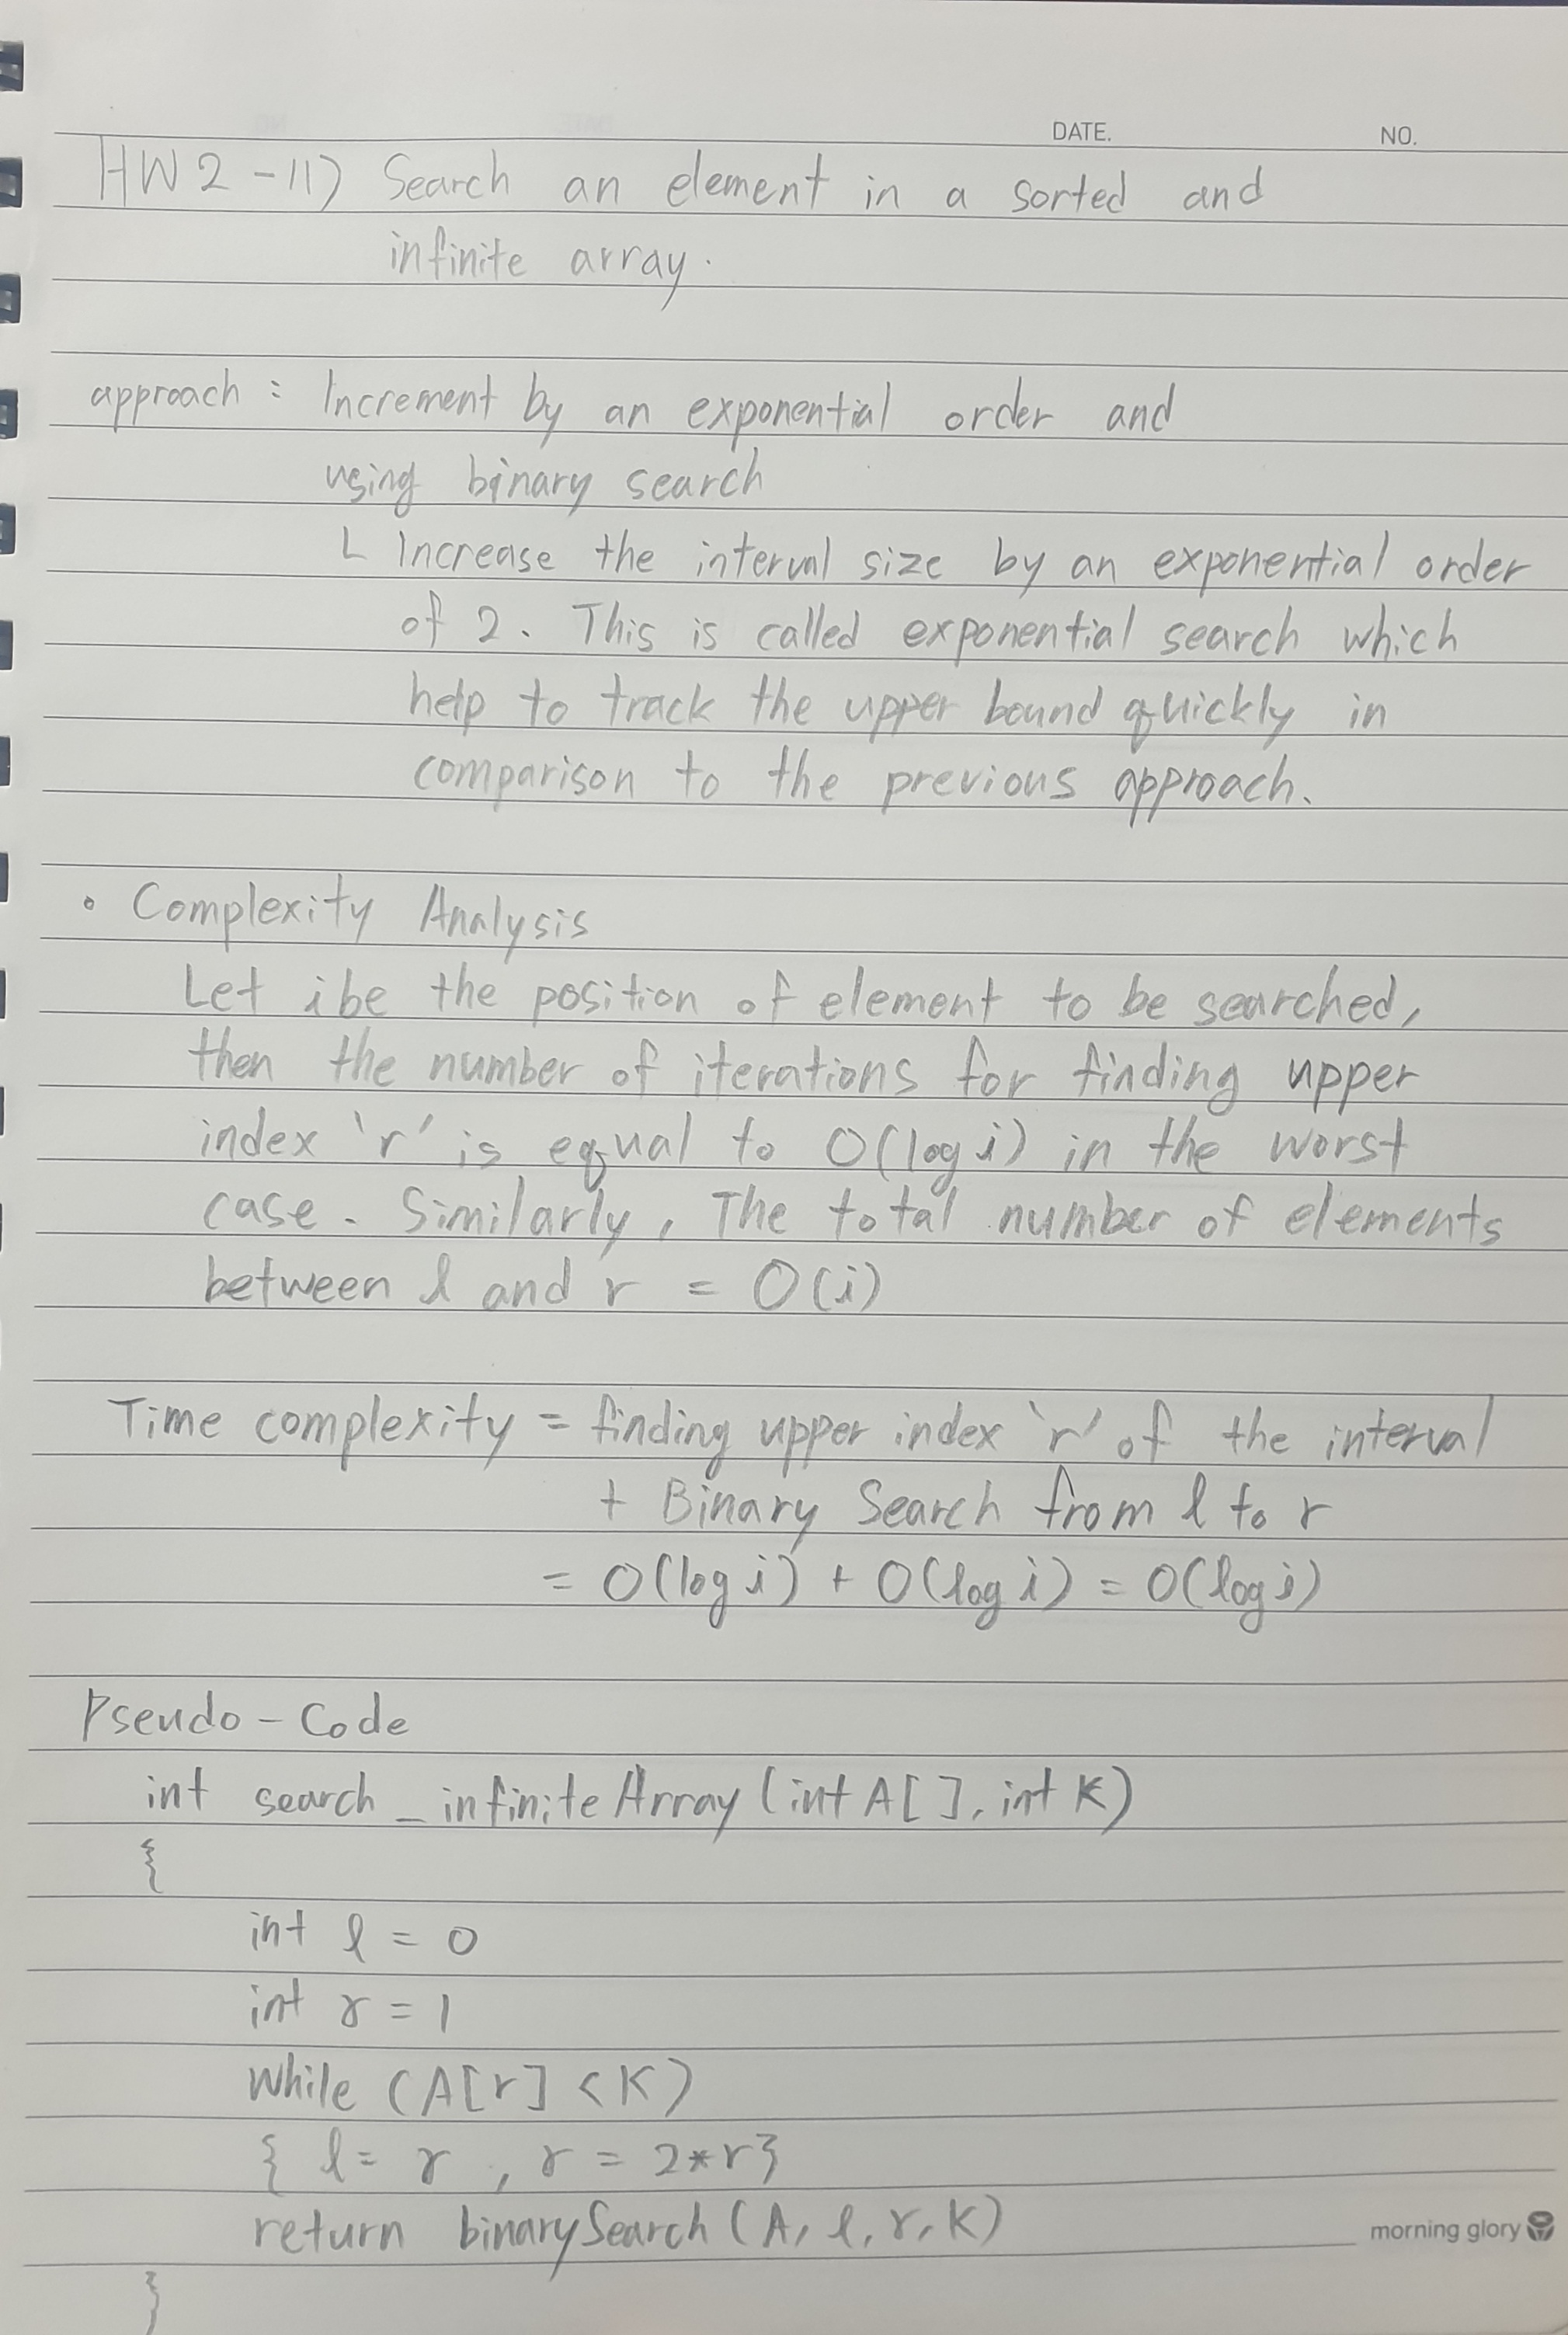 DATE. NO.
HW2-11) Search an element in a sorted and
infinite array.
approach : Increment by an exponential order and
using binary search
└ Increase the interval size by an exponential order
of 2. This is called exponential search which
help to track the upper bound quickly in
comparison to the previous approach.
• Complexity Analysis
Let i be the position of element to be searched,
then the number of iterations for finding upper
index 'r' is equal to O(log i) in the worst
case. Similarly, The total number of elements
between l and r = O(i)
Time complexity = finding upper index 'r' of the interval
+ Binary Search from l to r
= O(log i) + O(log i) = O(log i)
Pseudo-Code
int search_infiniteArray(int A[], int K)
{
int l = 0
int r = 1
While (A[r] < K)
{ l = r , r = 2*r}
return binarySearch(A, l, r, K)
morning glory
}